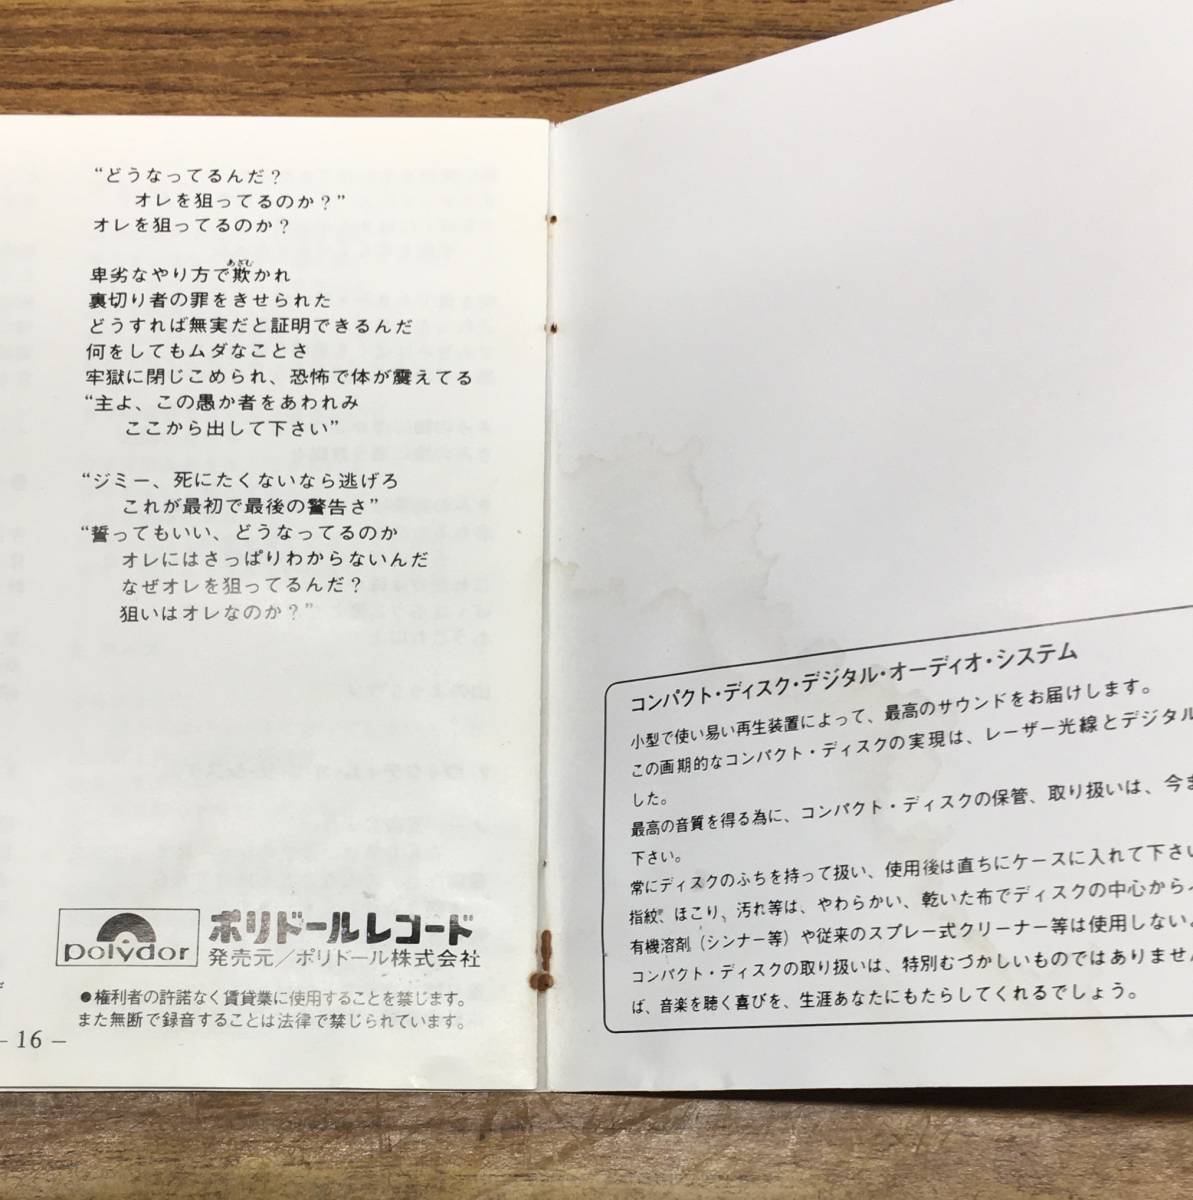 “どうなってるんだ?
オレを狙ってるのか?”
オレを狙ってるのか?
あざむ
卑劣なやり方で欺かれ
裏切り者の罪をきせられた
どうすれば無実だと証明できるんだ
何をしてもムダなことさ
牢獄に閉じこめられ、恐怖で体が震えてる
“主よ、この愚か者をあわれみ
ここから出して下さい”
“ジミー、死にたくないなら逃げろ
これが最初で最後の警告さ”
“誓ってもいい、どうなってるのか
オレにはさっぱりわからないんだ
なぜオレを狙ってるんだ?
狙いはオレなのか?”
polydor
ポリドールレコード
発売元/ポリドール株式会社
●権利者の許諾なく賃貸業に使用することを禁じます。
また無断で録音することは法律で禁じられています。
– 16 –
コンパクト・ディスク・デジタル・オーディオ・システム
小型で使い易い再生装置によって、最高のサウンドをお届けします。
この画期的なコンパクト・ディスクの実現は、レーザー光線とデジタル
した。
最高の音質を得る為に、コンパクト・ディスクの保管、取り扱いは、今ま
下さい。
常にディスクのふちを持って扱い、使用後は直ちにケースに入れて下さい
指紋、ほこり、汚れ等は、やわらかい、乾いた布でディスクの中心から
有機溶剤(シンナー等)や従来のスプレー式クリーナー等は使用しない
コンパクト・ディスクの取り扱いは、特別むづかしいものではありません
ば、音楽を聴く喜びを、生涯あなたにもたらしてくれるでしょう。